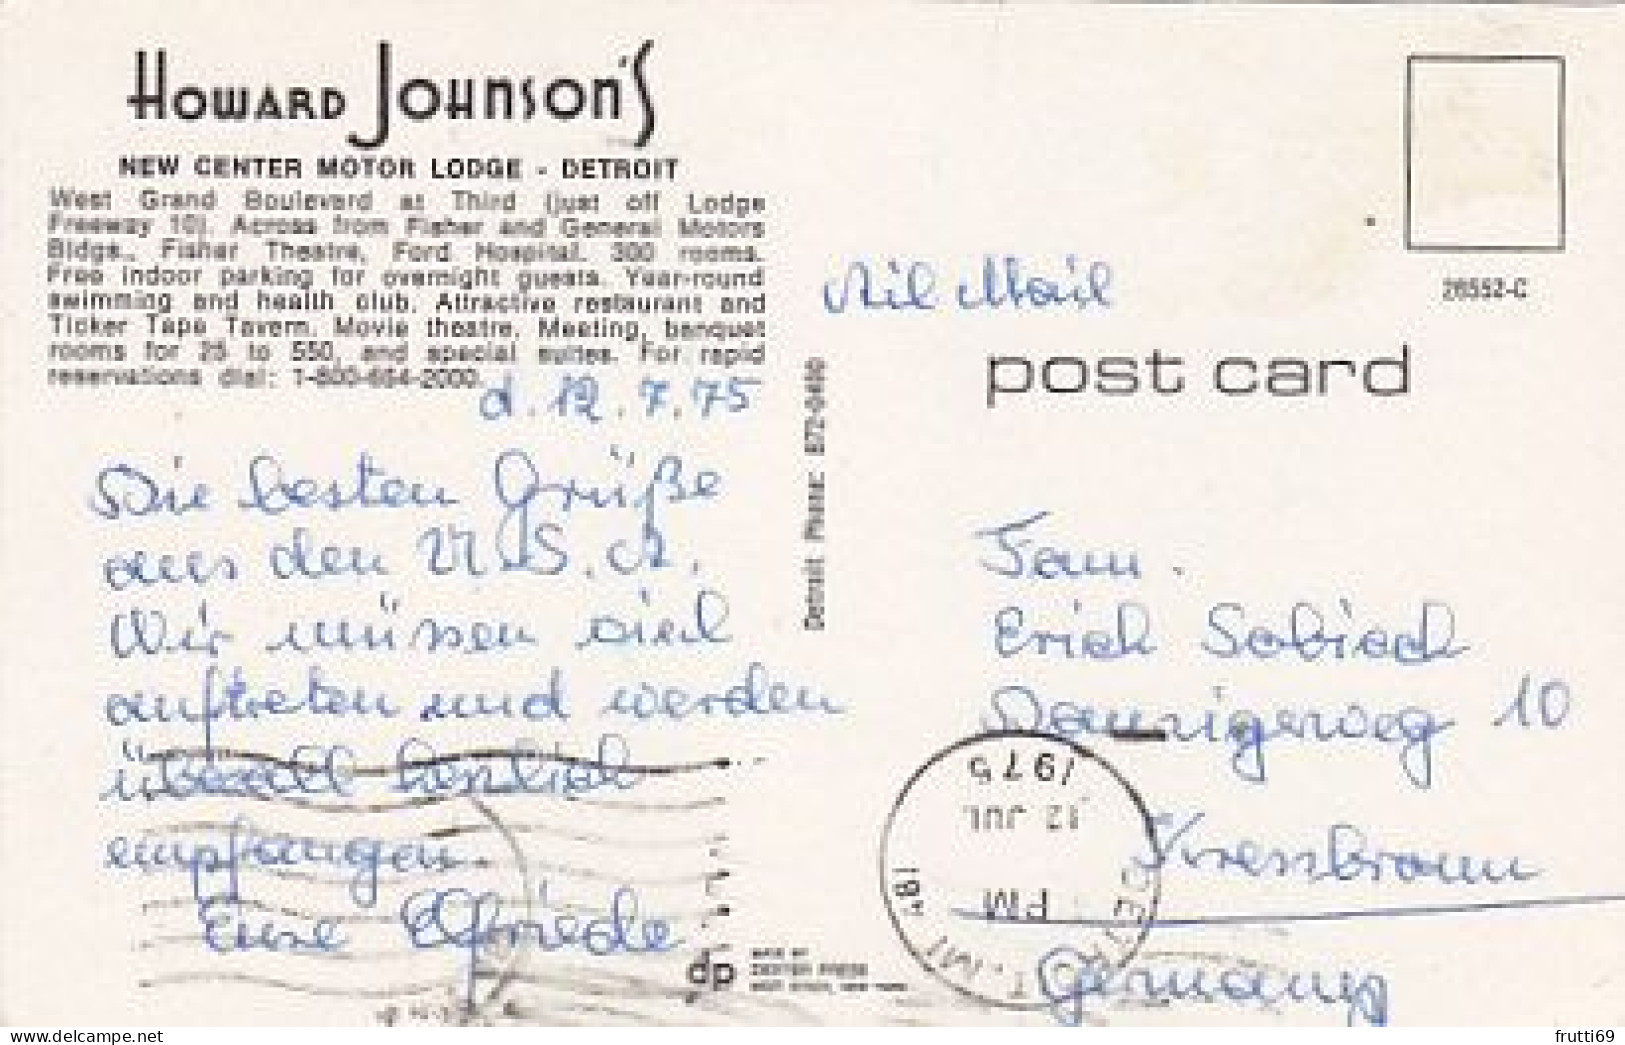 HOWARD JOHNSON'S
NEW CENTER MOTOR LODGE - DETROIT
West Grand Boulevard at Third (just off Lodge
Freeway 10). Across from Fisher and General Motors
Bldgs., Fisher Theatre, Ford Hospital. 300 rooms.
Free indoor parking for overnight guests. Year-round
swimming and health club. Attractive restaurant and
Ticker Tape Tavern. Movie theatre. Meeting, banquet
rooms for 25 to 550, and special suites. For rapid
reservations dial: 1-800-654-2000.
d. 12.7.75
Die besten Grüße
aus den U.S.A.
Wir müssen viel
auftreten und werden
überall herzlich
empfangen.
Eure Elfriede
Detroit Phone: 872-0400
dp
MADE BY
DEXTER PRESS
WEST NYACK, NEW YORK
26552-C
Ail Mail
post card
Fam.
Erich Sobisch
Danzigerweg 10
Kressbronn
Germany
DETROIT, MI
PM
12 JUL
1975
frutti69